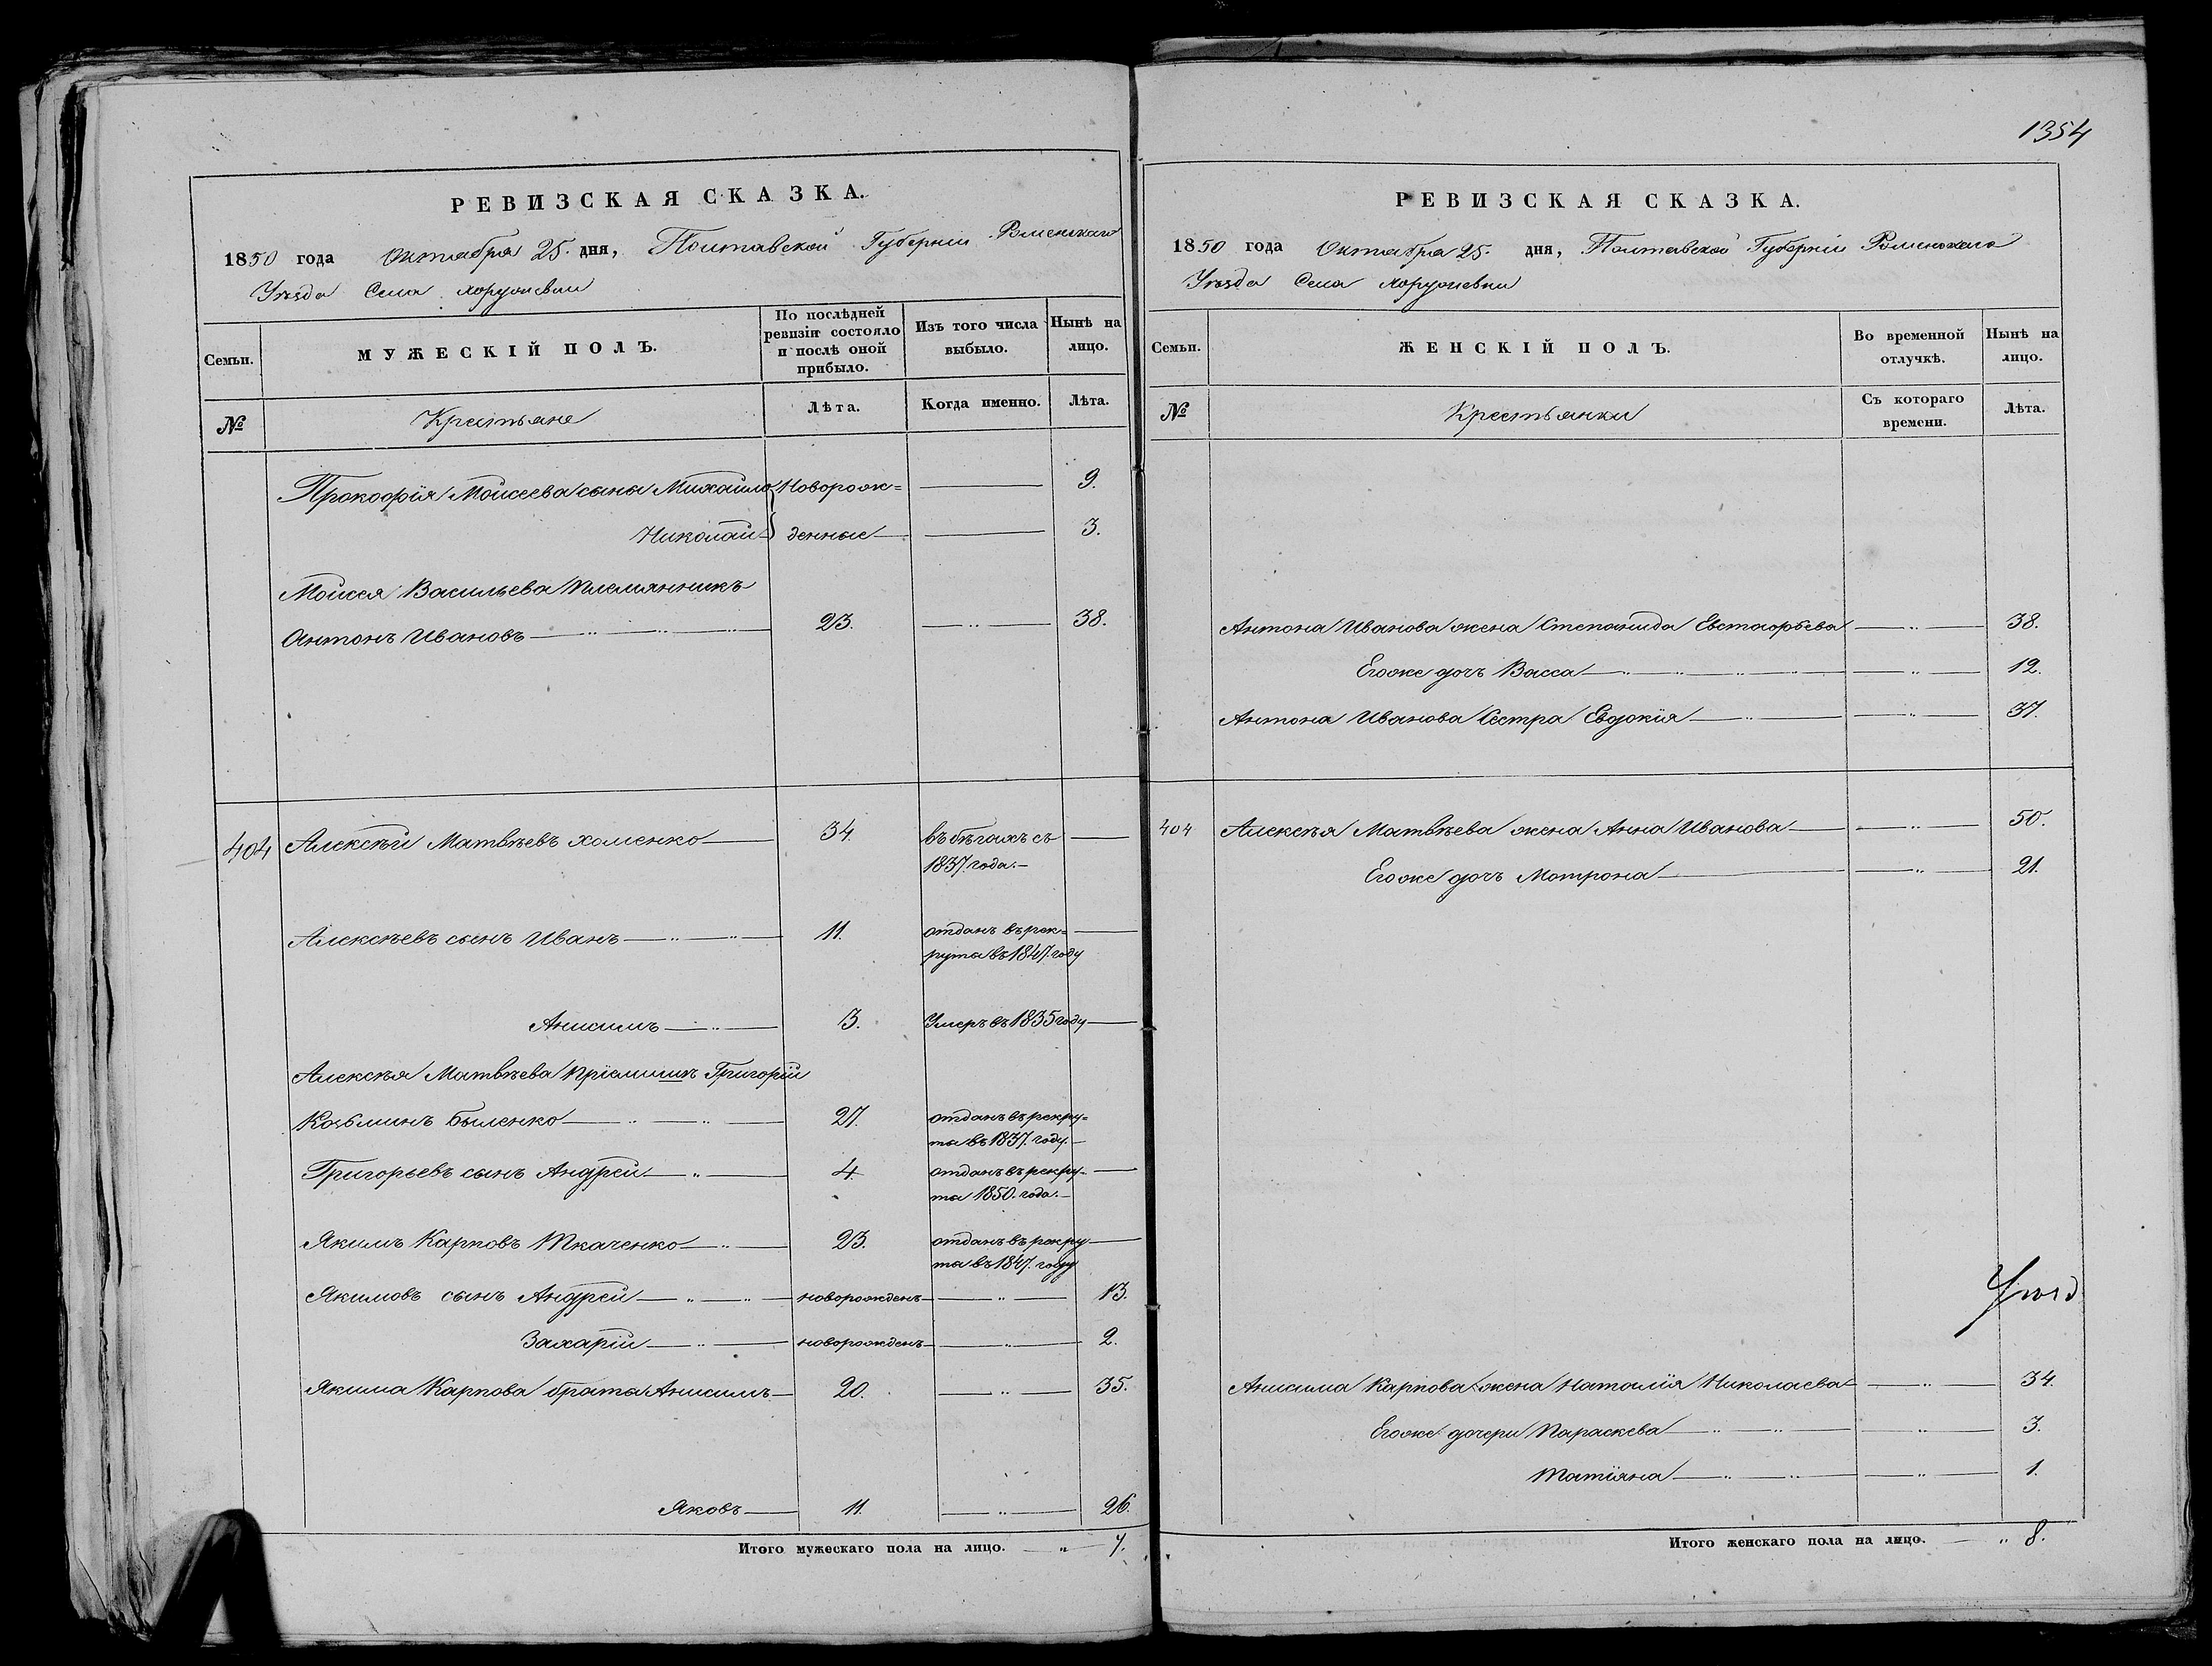 РЕВИЗСКАЯ СКАЗКА.
1850 года Октября 25. дня, Полтавской Губерніи Роменскаго
Уѣзда Села Хоружевки
Семьи.
МУЖЕСКІЙ ПОЛЪ.
По послѣдней
ревизіи состояло
и послѣ оной
прибыло.
Изъ того числа
выбыло.
Нынѣ на
лицо.
№
Крестьяне
Лѣта.
Когда именно.
Лѣта.
Прокофія Моисеева сыны Михайло Новорож= 9.
Николай денные 3.
Моисея Васильева племянникъ
Антонъ Ивановъ 23. 38.
404 Алексѣй Матвѣевъ Хоменко 34. въ бѣгахъ съ
1837. года.
Алексѣевъ сынъ Иванъ 11. отданъ въ рек=
рута въ 1847. году
Анисимъ 3. Умеръ въ 1835 году
Алексѣя Матвѣева пріемышъ Григорій
Козьминъ Быленко 27. отданъ въ рекру=
та въ 1837. году.
Григорьевъ сынъ Андрей 4. отданъ въ рекру=
та 1850. года.
Якимъ Карповъ Ткаченко 23. отданъ въ рекру
та въ 1847. году
Якимовъ сынъ Андрей новорожденъ 13.
Захарій новорожденъ 2.
Якима Карпова брата Анисимъ 20. 35.
Яковъ 11. 26.
Итого мужескаго пола на лицо. 7.
1354
РЕВИЗСКАЯ СКАЗКА.
1850 года Октября 25. дня, Полтавской Губерніи Роменскаго
Уѣзда Села Хоружевки
Семьи.
ЖЕНСКІЙ ПОЛЪ.
Во временной
отлучкѣ.
Нынѣ на
лицо.
№
Крестьянки
Съ котораго
времени.
Лѣта.
Антона Иванова жена Степанида Евстафьева 38.
Егоже дочь Васса 12.
Антона Иванова сестра Евдокія 37.
404 Алексѣя Матвѣева жена Анна Иванова 50.
Егоже дочь Мотрона 21.
Анисима Карпова жена Наталія Николаева 34.
Егоже дочери Параскева 3.
Татіяна 1.
Итого женскаго пола на лицо. 8.